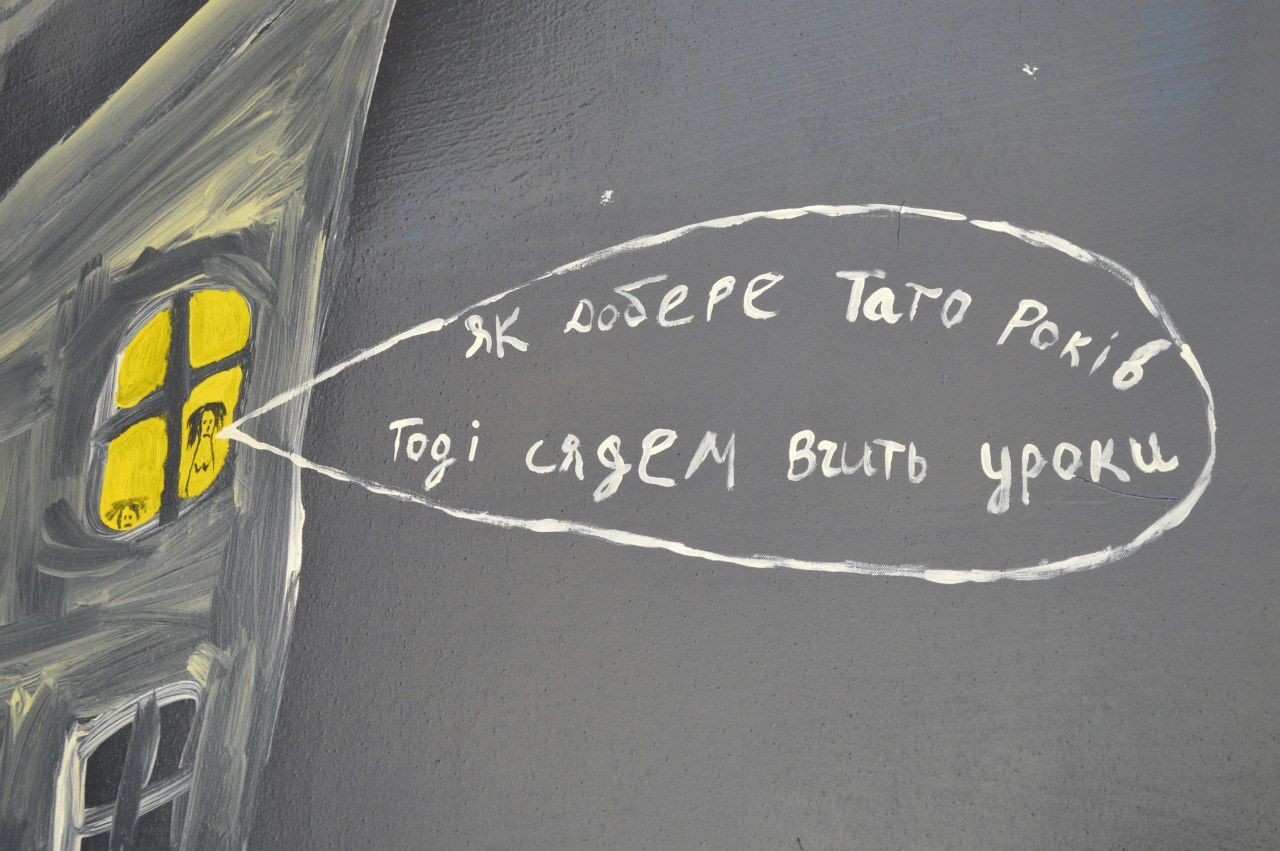 як добере Тато Років
Тоді сядем вчить уроки